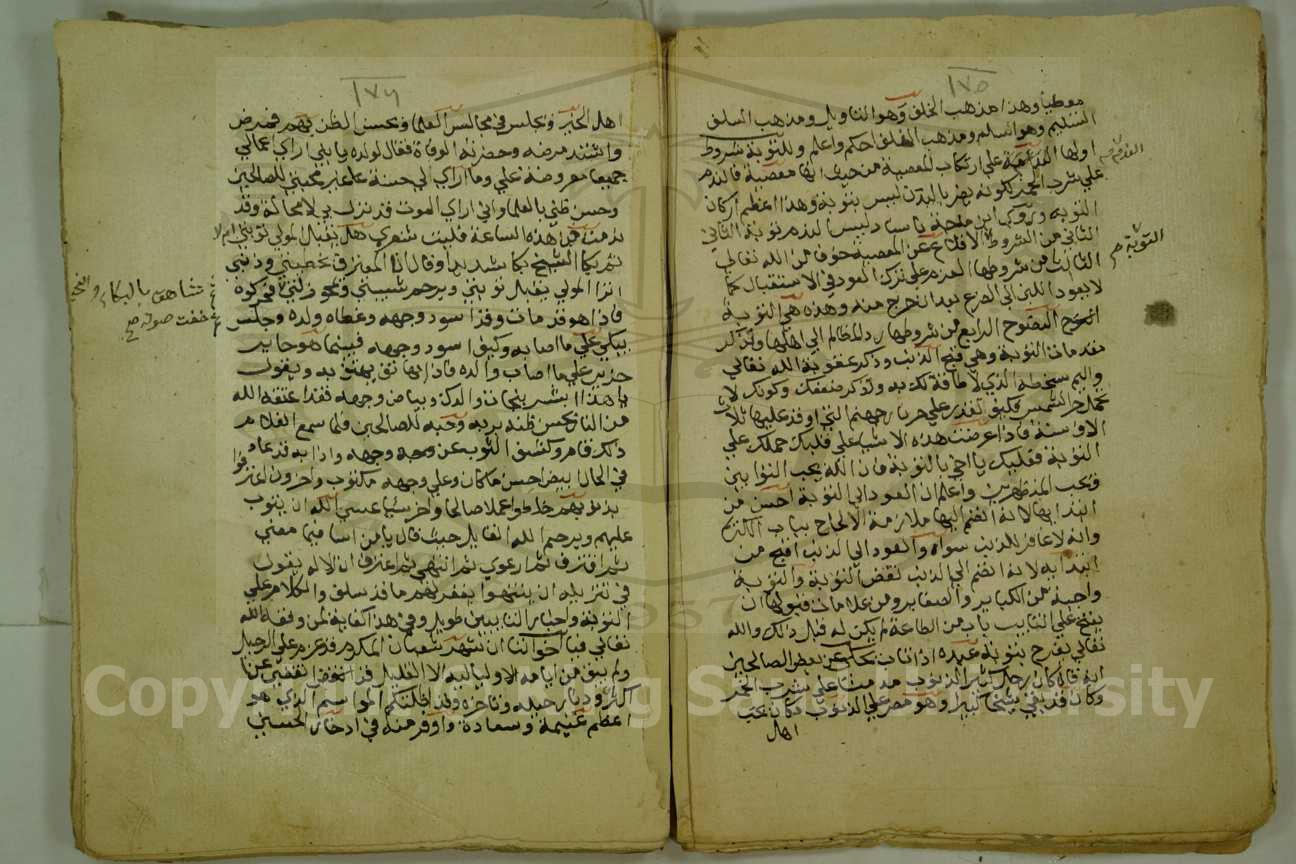 ١٧٥
معطيا وهذا مذهب الخلف وهو التاويل ومذهب السلف
التسليم وهو اسلم ومذهب الخلف احكم واعلم وللتوبة شروط
اولها الندامة على ارتكاب المعصية من حيث انها معصية فالندم
على شرب الخمر لكونه يضر بالبدن ليس بتوبة وهذا اعظم اركان
التوبة وروي ابن ماجة الندم توبة الثاني
الثاني من الشروط الاقلاع عن المعصية خوفا من الله تعالى
الثالث من شروطها العزم على ترك العود في الاستقبال كما
لا يعود اللبن الى الضرع بعد ان خرج منه وهذه هي التوبة
النصوح الرابع من شروطها رد المظالم الى اهلها وتذكر
مقدمات التوبة وهي قبح الذنب وذكر عقوبة الله تعالى
واليم سخطه الذي لا طاقة لك به وتذكر ضعفك وكونك لا
تحمل حر الشمس فكيف تقدر على حر نار جهنم التي اوقد عليها ثلاثة
الاف سنة فاذا عرضت هذه الاشيا على قلبك حملك على
التوبة فعليك يا اخي بالتوبة فان الله يحب التوابين
ويحب المتطهرين واعلم ان العود الى التوبة احسن من
ابتدايها لانه انضم اليها ملازمة الالحاح بباب الكريم
وانه لا غافر للذنب سواه والعود الى الذنب اقبح من
ابتدايه لانه انضم الى الذنب نقض التوبة والتوبة
واجبة من الكباير والصغاير ومن علامات قبولها ان
يفتح على التايب باب من الطاعة لم يكن له قبل ذلك والله
تعالى يفرح بتوبة عبده اذا تاب يحكى عن بعض الصالحين
انه قال كان رجل كثير الذنوب مدمنا على شرب الخمر
وكان قد بقي شيخا كبيرا وهو مصر على الذنوب وكان يحب
اهل
الندم صح
التوبة صح
١٧٦
اهل الخير ويجلس في مجالس العلما ويحسن الظن بهم فمرض
واشتد مرضه وحضرته الوفاة فقال لولده يا بني اراي اعمالي
جميعها معروضة علي وما اراي لي حسنة غير محبتي للصالحين
وحسن ظني بالعلما واني اراي الموت قد نزل بي لا محالة وقد
ندمت في هذه الساعة فليت شعري هل يقبل المولى توبتي ام لا
ثم بكا الشيخ بكا شديدا وقال انا المعترف بخطيتي وذنبي
اترا المولى يقبل توبتي ويرحم شيبتي ويمحو زلتي فحركوه
فاذا هو قد مات وقد اسود وجهه وغطاه ولده وجلس
يبكي على ما اصابه وكيف اسود وجهه فبينما هو جالس
حزين على ما اصاب والده فاذا هاتف يهتف به ويقول
يا هذا ابشر بنجات والدك وبياض وجهه فقد اعتقه الله
من النار بحسن ظنه بربه وحبه للصالحين فلما سمع الغلام
ذلك قام وكشف الثوب عن وجهه واذا به قد عاد
في الحال ابيض احسن ما كان وعلى وجهه مكتوب واخرون اعترفوا
بذنوبهم خلطوا عملا صالحا واخر سيا عسى الله ان يتوب
عليهم ويرحم الله القايل حيث قال يا من اسا فيما مضى
ثم اقترف ثم ارعوي ثم انتهى ثم اعترف ان الاله يقول
في تنزيله ان ينتهوا يغفر لهم ما قد سلف والكلام على
التوبة واخبار التايبين طويل وفي هذا كفاية لمن وفقه الله
تعالى فيا اخواننا ان شهر شعبان المكرم قد عزم على الرحيل
ولم يبق من ايامه الا ولياليه الا القليل
اعظم غنيمة وسعادة واوفر منة في ادخار الحسنى
شاهق بالبكاء
خفت صوته صح
Copyright © King Saud University
1957